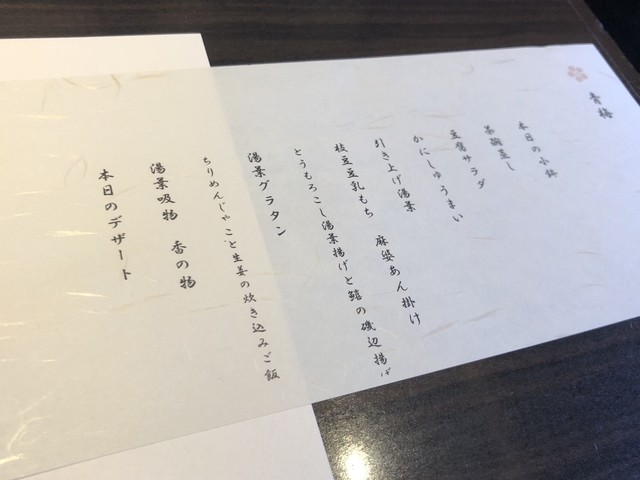 青梅
本日の小鉢
茶碗蒸し
豆腐サラダ
かにしゅうまい
引き上げ湯葉
枝豆豆乳もち 麻婆あん掛け
とうもろこし湯葉揚げと鱈の磯辺揚げ
湯葉グラタン
ちりめんじゃこと生姜の炊き込みご飯
湯葉吸物 香の物
本日のデザート